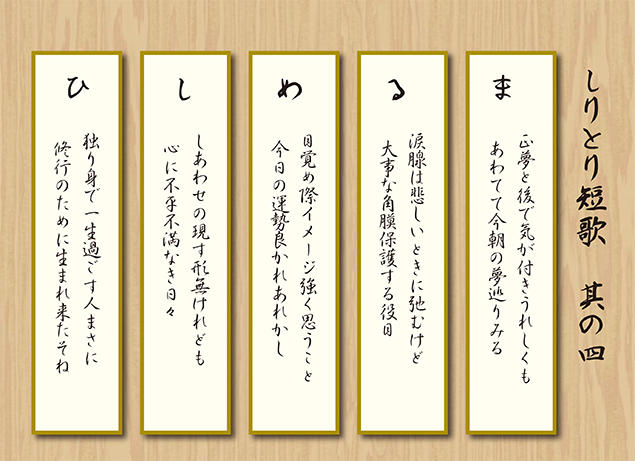 しりとり短歌 其の四
ま
正夢と後で気が付きうれしくも
あわてて今朝の夢巡りみる
る
涙腺は悲しいときに弛むけど
大事な角膜保護する役目
め
目覚め際イメージ強く思うこと
今日の運勢良かれあれかし
し
しあわせの現す形無けれども
心に不平不満なき日々
ひ
独り身で一生過ごす人まさに
修行のために生まれ来たそね